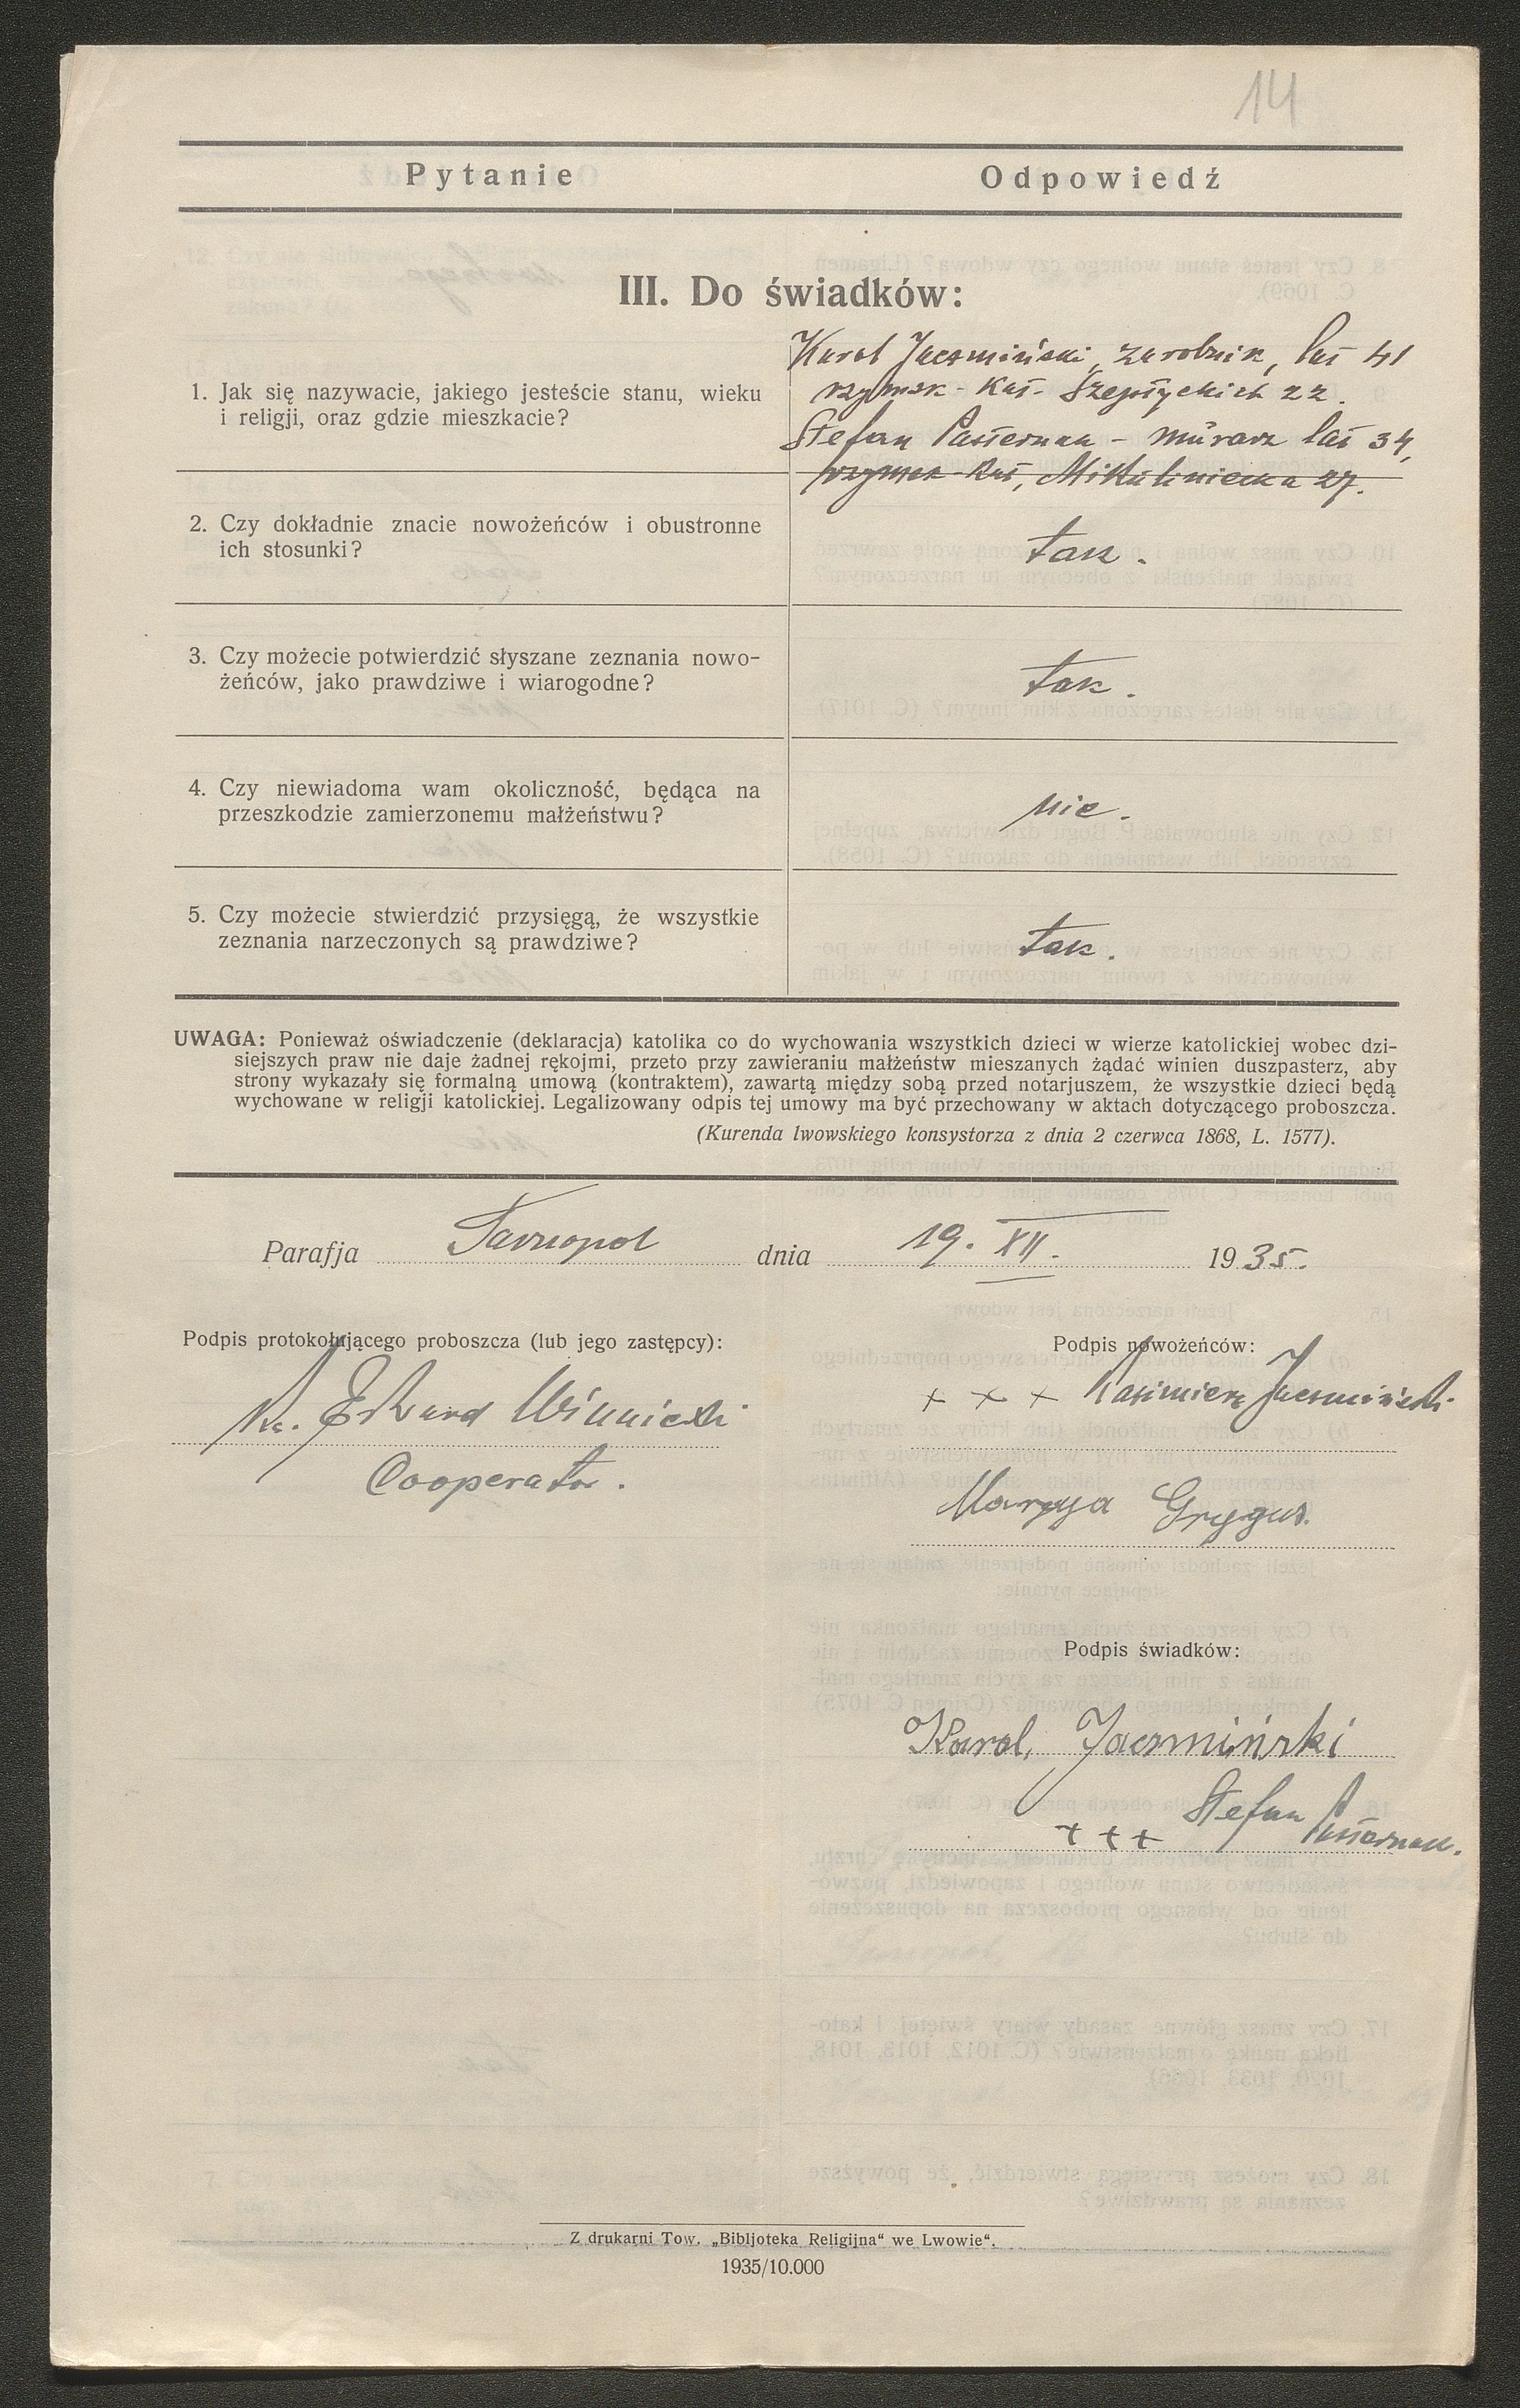 14
Pytanie Odpowiedź
III. Do świadków:
1. Jak się nazywacie, jakiego jesteście stanu, wieku
i religji, oraz gdzie mieszkacie?
Karol Jaczmiński, zarobnik, lat 41
rzymsk-kat. Szeptyckich 22.
Stefan Pasternak - murarz lat 34,
rzymsk-kat, Mikuliniecka 27.
2. Czy dokładnie znacie nowożeńców i obustronne
ich stosunki?
tak.
3. Czy możecie potwierdzić słyszane zeznania nowo-
żeńców, jako prawdziwe i wiarogodne?
tak.
4. Czy niewiadoma wam okoliczność, będąca na
przeszkodzie zamierzonemu małżeństwu?
nie.
5. Czy możecie stwierdzić przysięgą, że wszystkie
zeznania narzeczonych są prawdziwe?
tak.
UWAGA: Ponieważ oświadczenie (deklaracja) katolika co do wychowania wszystkich dzieci w wierze katolickiej wobec dzi-
siejszych praw nie daje żadnej rękojmi, przeto przy zawieraniu małżeństw mieszanych żądać winien duszpasterz, aby
strony wykazały się formalną umową (kontraktem), zawartą między sobą przed notarjuszem, że wszystkie dzieci będą
wychowane w religji katolickiej. Legalizowany odpis tej umowy ma być przechowany w aktach dotyczącego proboszcza.
(Kurenda lwowskiego konsystorza z dnia 2 czerwca 1868, L. 1577).
Parafja Tarnopol dnia 19. XII. 1935.
Podpis protokołującego proboszcza (lub jego zastępcy):
Ks. Edward Winnicki
Cooperator.
Podpis nowożeńców:
+ + + Kazimierz Jaczmiński
Maryja Grygus.
Podpis świadków:
Karol Jaczmiński
+++ Stefan Pasternak.
Z drukarni Tow. „Bibljoteka Religijna“ we Lwowie“.
1935/10.000